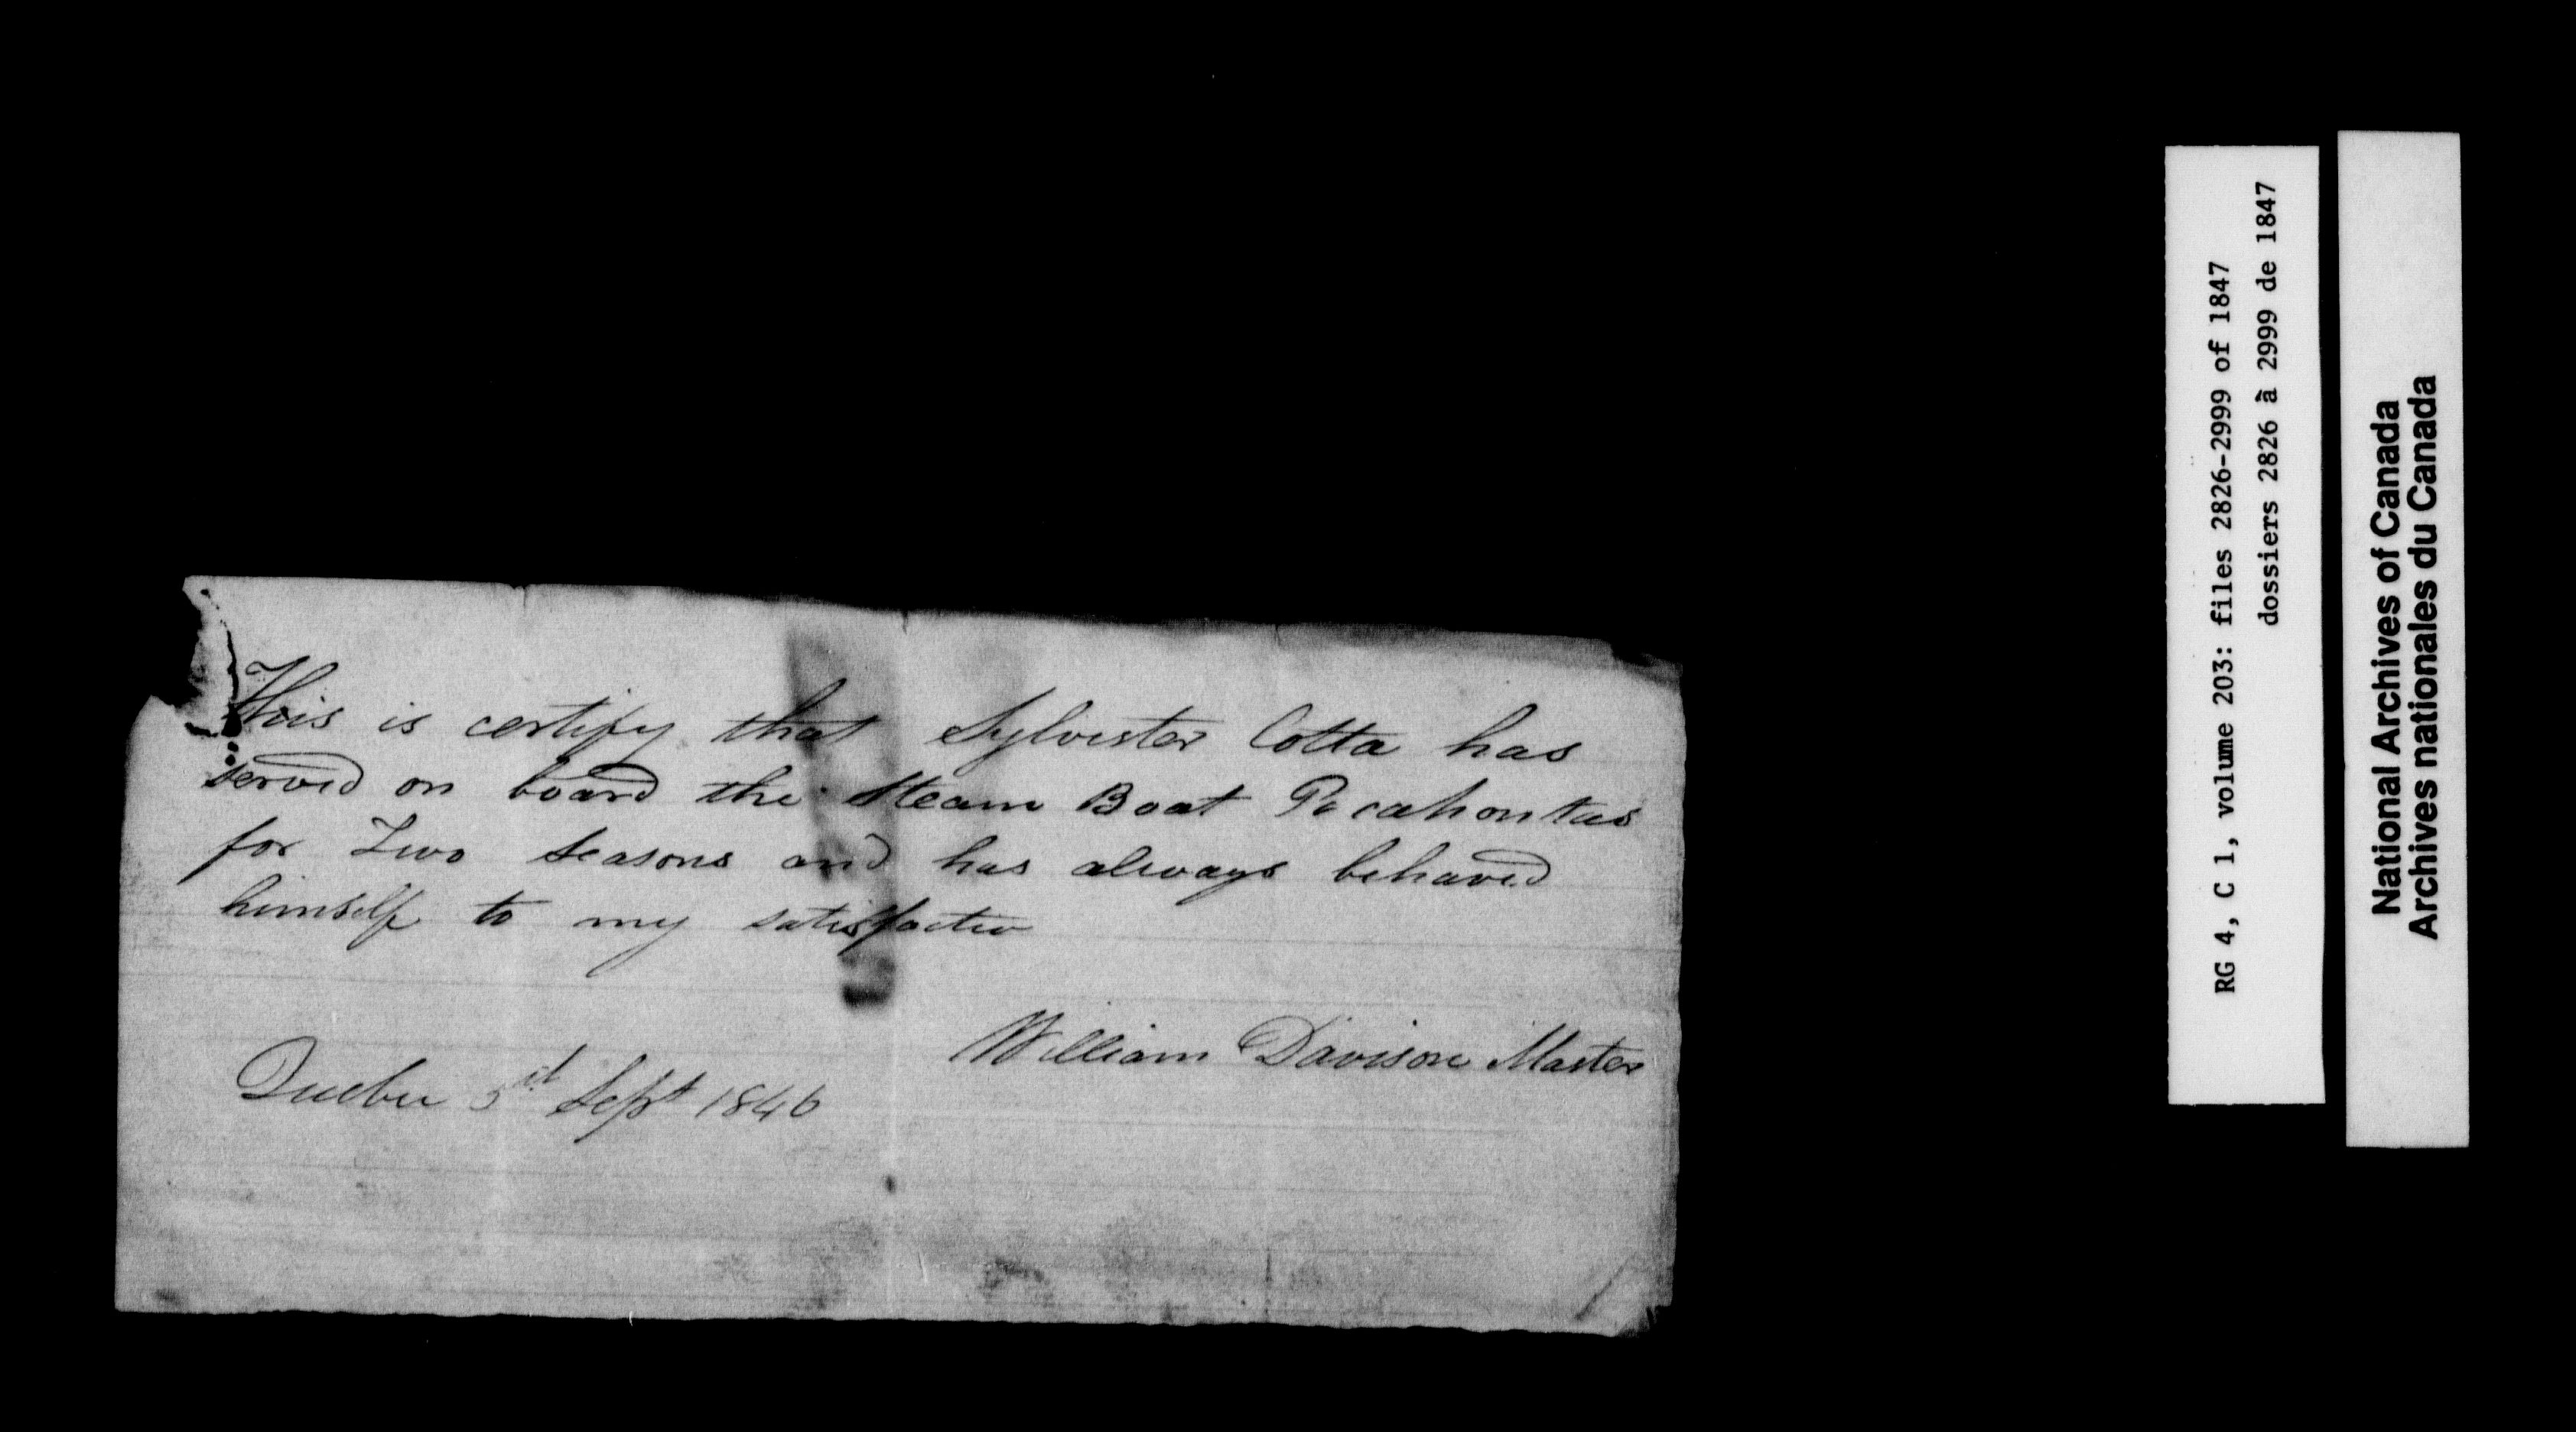 This is certify that Sylvester Cotta has
served on board the Steam Boat Pocahontas
for Two Seasons and has always behaved
himself to my satisfactio
William Davison Master
Quebec 3d Sept 1846
RG 4, C 1, volume 203: files 2826-2999 of 1847
dossiers 2826 à 2999 de 1847
National Archives of Canada
Archives nationales du Canada